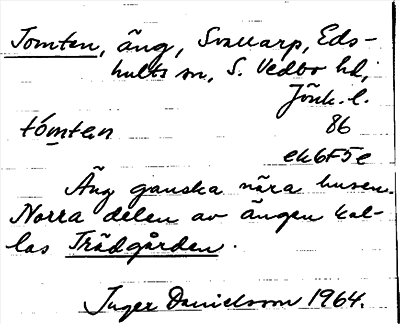 Tomten, äng, Svallarp, Eds-
hults sn, S. Vedbo hd,
Jönk. l.
tómten 86
ek6f5e
Äng ganska nära husen.
Norra delen av ängen kal-
las Trädgården.
Inger Danielsson 1964.